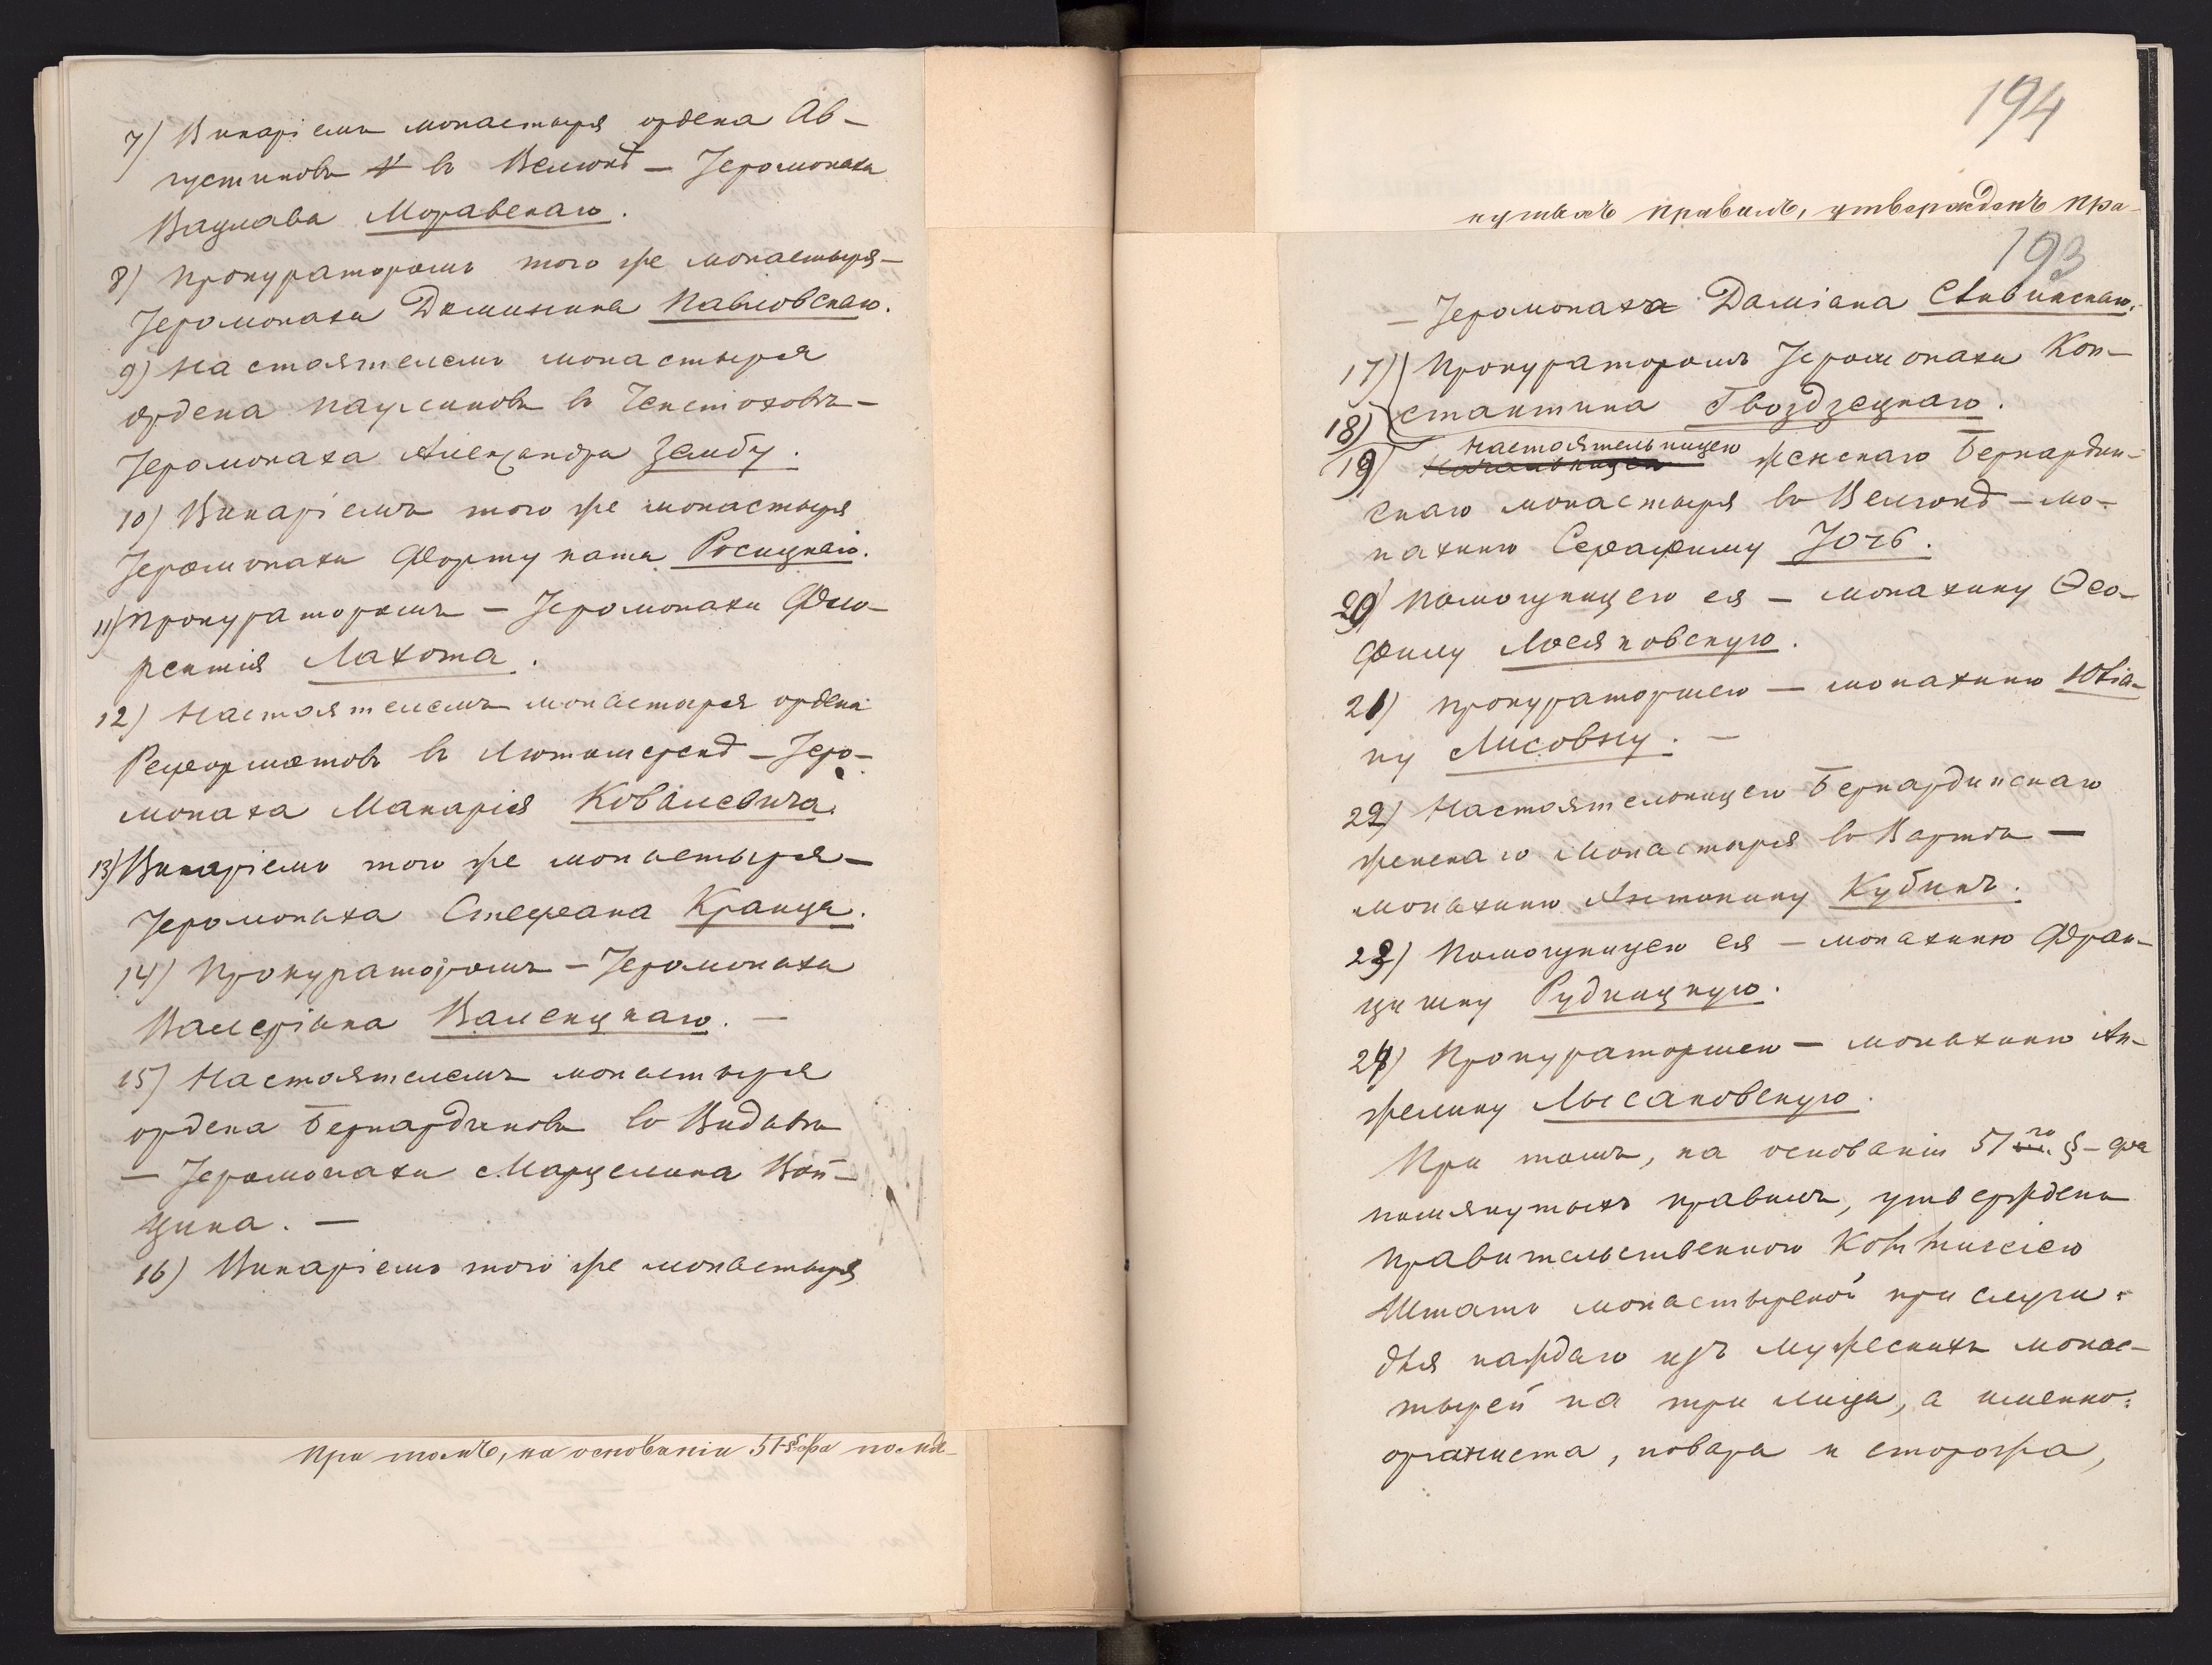 7) Викаріемъ монастыря ордена Ав-
густиновъ въ Велюнѣ — Іеромонаха
Вацлава Моравскаго.
8) Прокураторомъ того же монастыря —
Іеромонаха Доминика Павловскаго.
9) Настоятелемъ монастыря
ордена Паулиновъ въ Ченстоховѣ —
Іеромонаха Александра Зембу.
10) Викаріемъ того же монастыря
Іеромонаха Фортуната Росицкаго.
11) Прокураторомъ — Іеромонаха Фло-
рентія Лахота.
12) Настоятелемъ монастыря ордена
Реформатовъ въ Лютомерскѣ — Іеро-
монаха Макарія Ковалевича.
13) Викаріемъ того же монастыря —
Іеромонаха Стефана Кранца.
14) Прокураторомъ — Іеромонаха
Валеріана Валецкаго. —
15) Настоятелемъ монастыря
ордена Бернардиновъ въ Видавѣ
— Іеромонаха Марцелина Вой-
цика. —
16) Викаріемъ того же монастыря
При томъ, на основаніи 51 §-фа помя-
194
нутыхъ правилъ, утвержденъ Пра-
193
— Іеромонаха Даміана Сливинскаго.
17) Прокураторомъ Іеромонаха Кон-
18) стантина Гвоздзецкаго.
Настоятельницею
19) женскаго Бернардин-
скаго монастыря въ Велюнѣ — мо-
нахиню Серафиму Зочъ.
20) Помощницею ея — монахину Ѳео-
филу Лосяковскую.
21) Прокураторшею — монахиню Юліа-
ну Лисовну. —
22) Настоятельницею Бернардинскаго
женскаго монастыря въ Вартѣ —
монахиню Антонину Кубикъ.
23) Помощницею ея — монахиню Фран-
цишку Рудницкую.
24) Прокураторшею — монахиню Ан-
желику Лысаковскую.
При томъ, на основаніи 51 го §-фа
помянутыхъ правилъ, утвержденъ
Правительственною Коммисіею
Штатъ монастырской прислуги
для каждаго изъ мужескихъ монас-
тырей на три лица, а именно:
органиста, повара и сторожа,